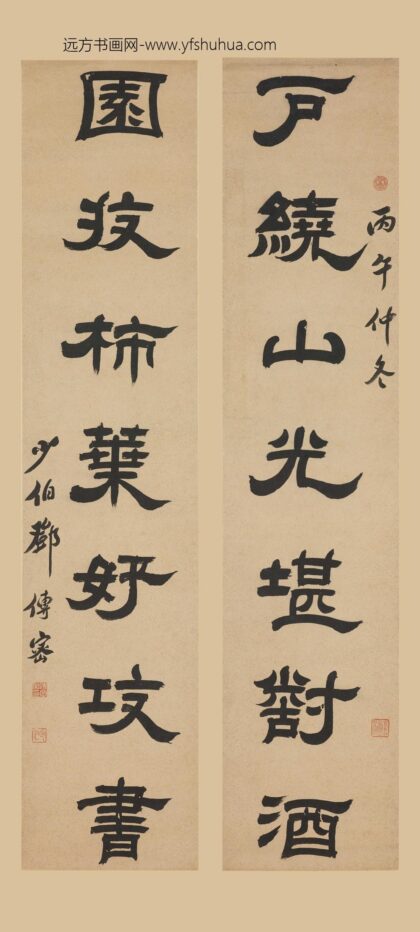 远方书画网-www.yfshuhua.com
戶繞山光堪對酒
丙午仲冬
園收柿葉好攻書
少伯鄧傳密